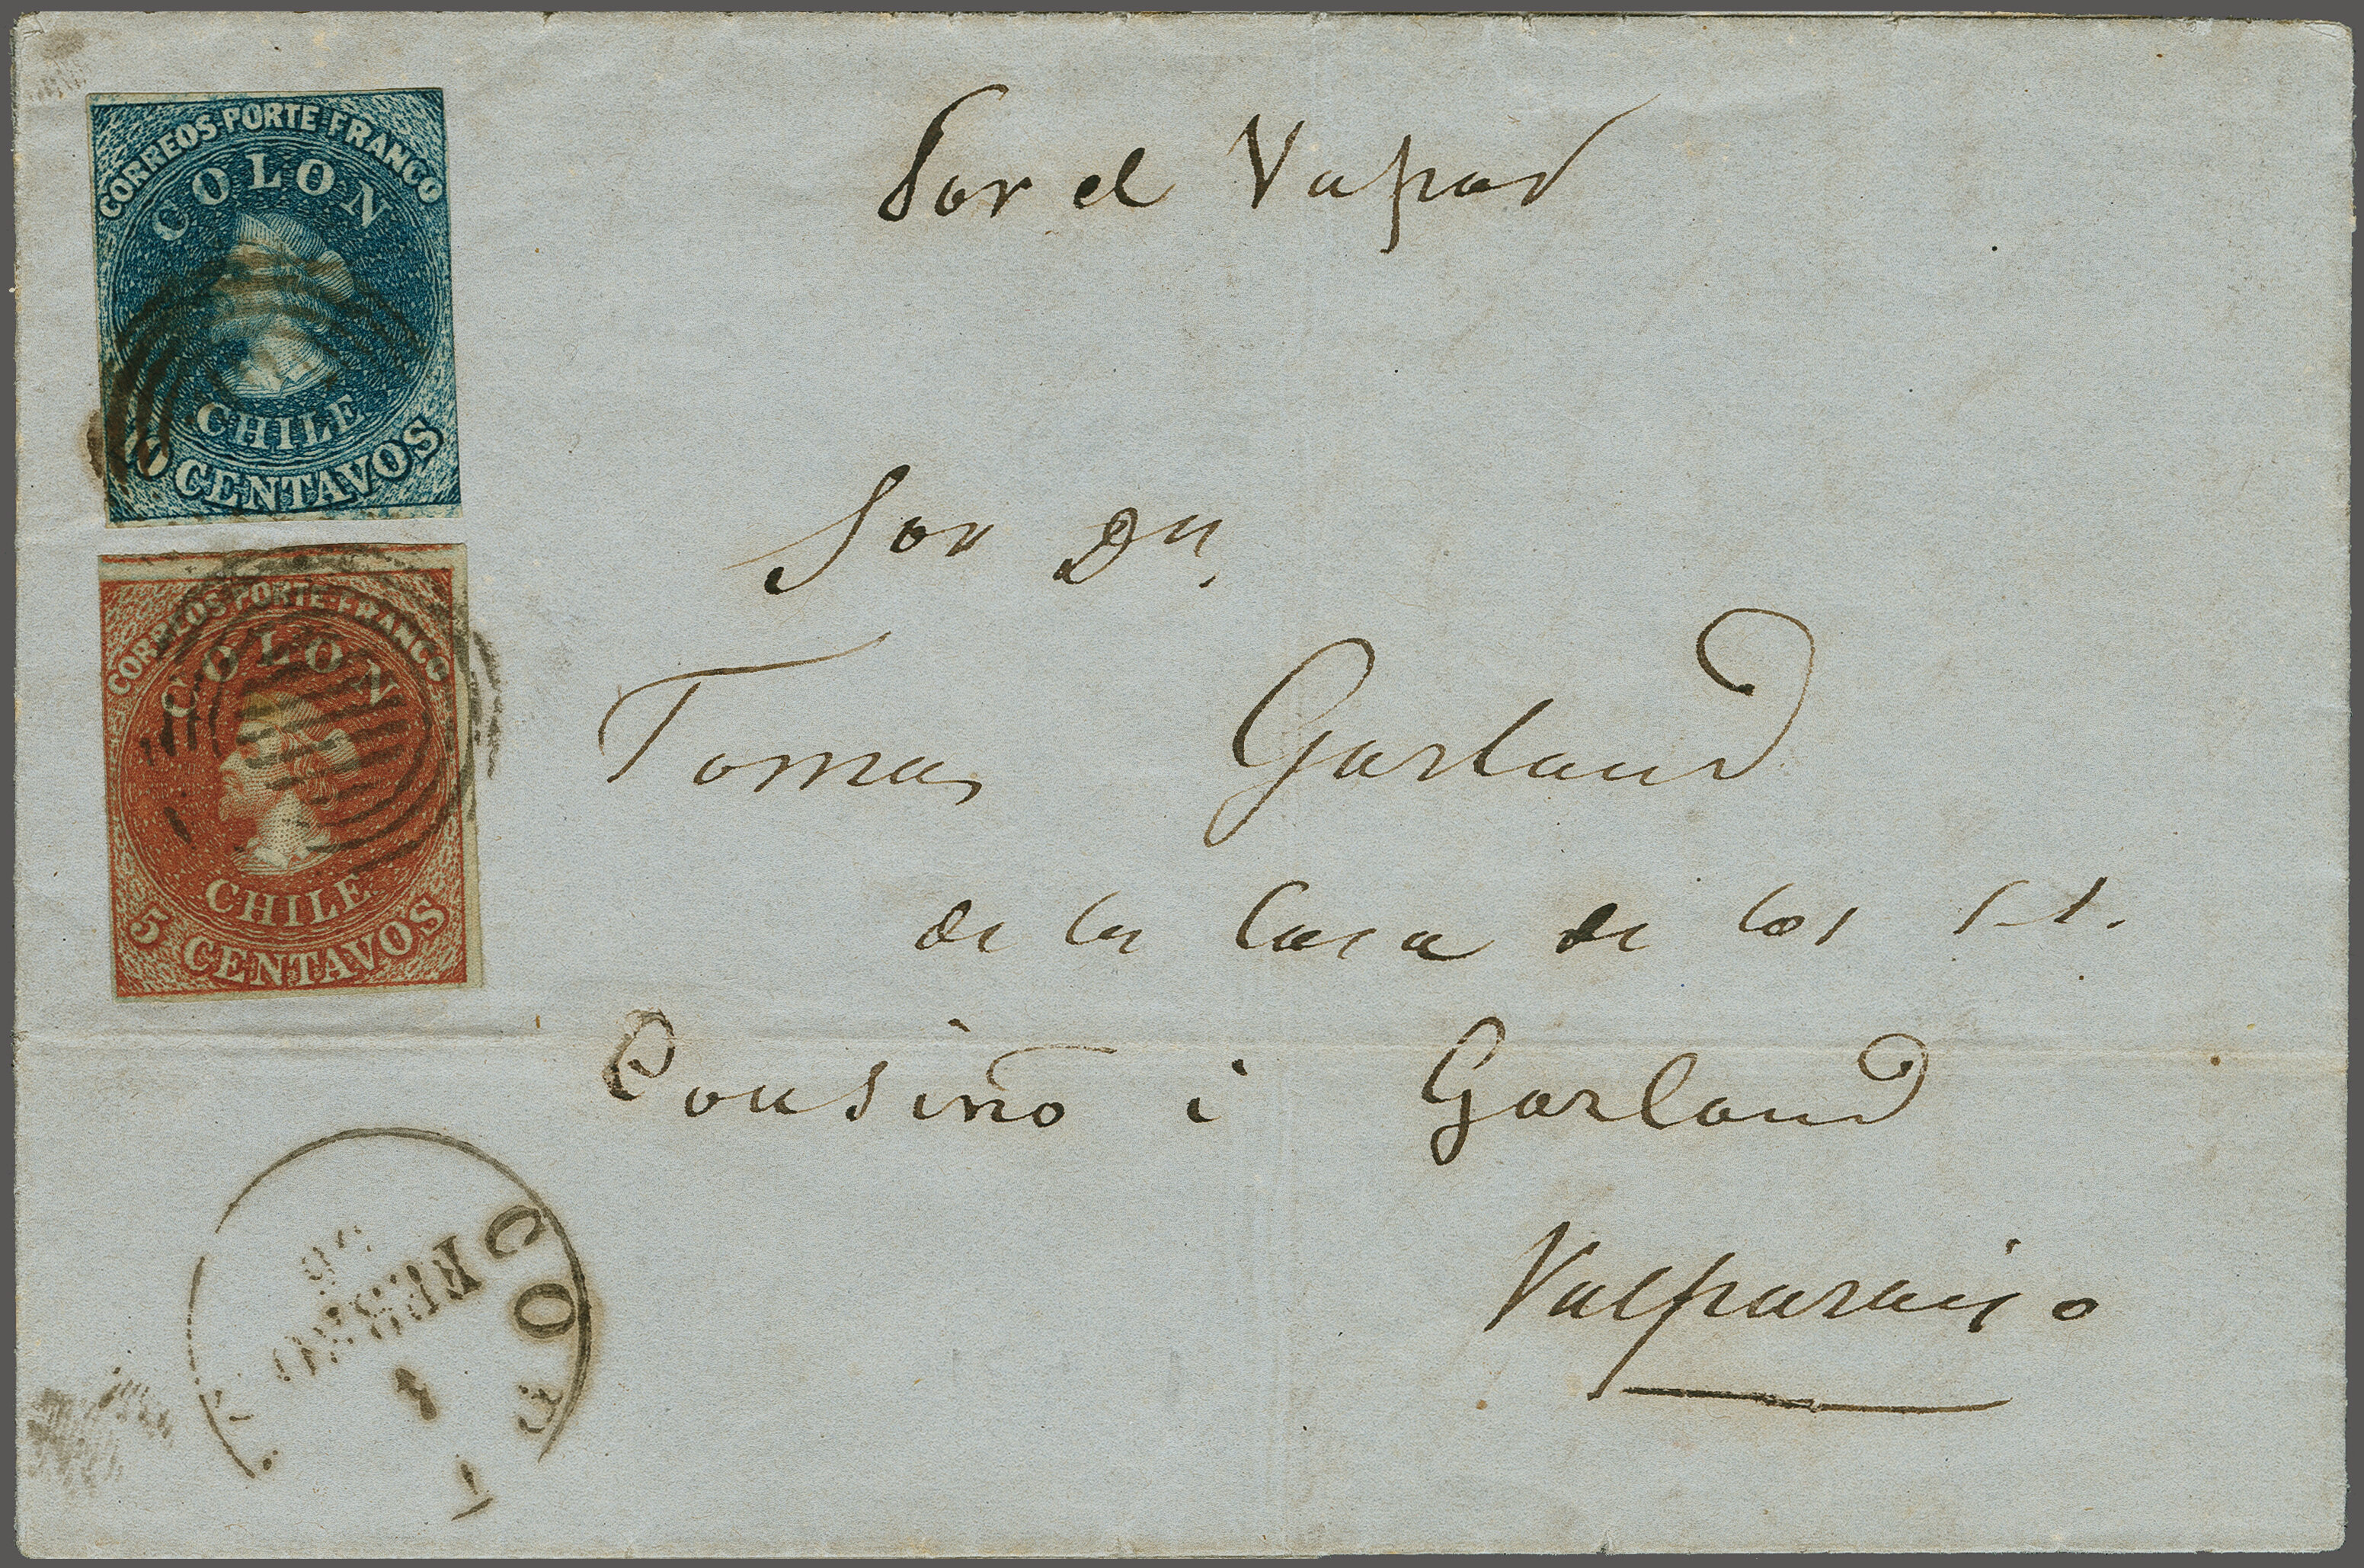 CORREOS PORTE FRANCO
COLON
CHILE
10 CENTAVOS
CORREOS PORTE FRANCO
COLON
CHILE
5 CENTAVOS
Por el Vapor
Sor Dn.
Tomas Garland
de la Casa de los SS.
Cousiño i Garland
Valparaiso